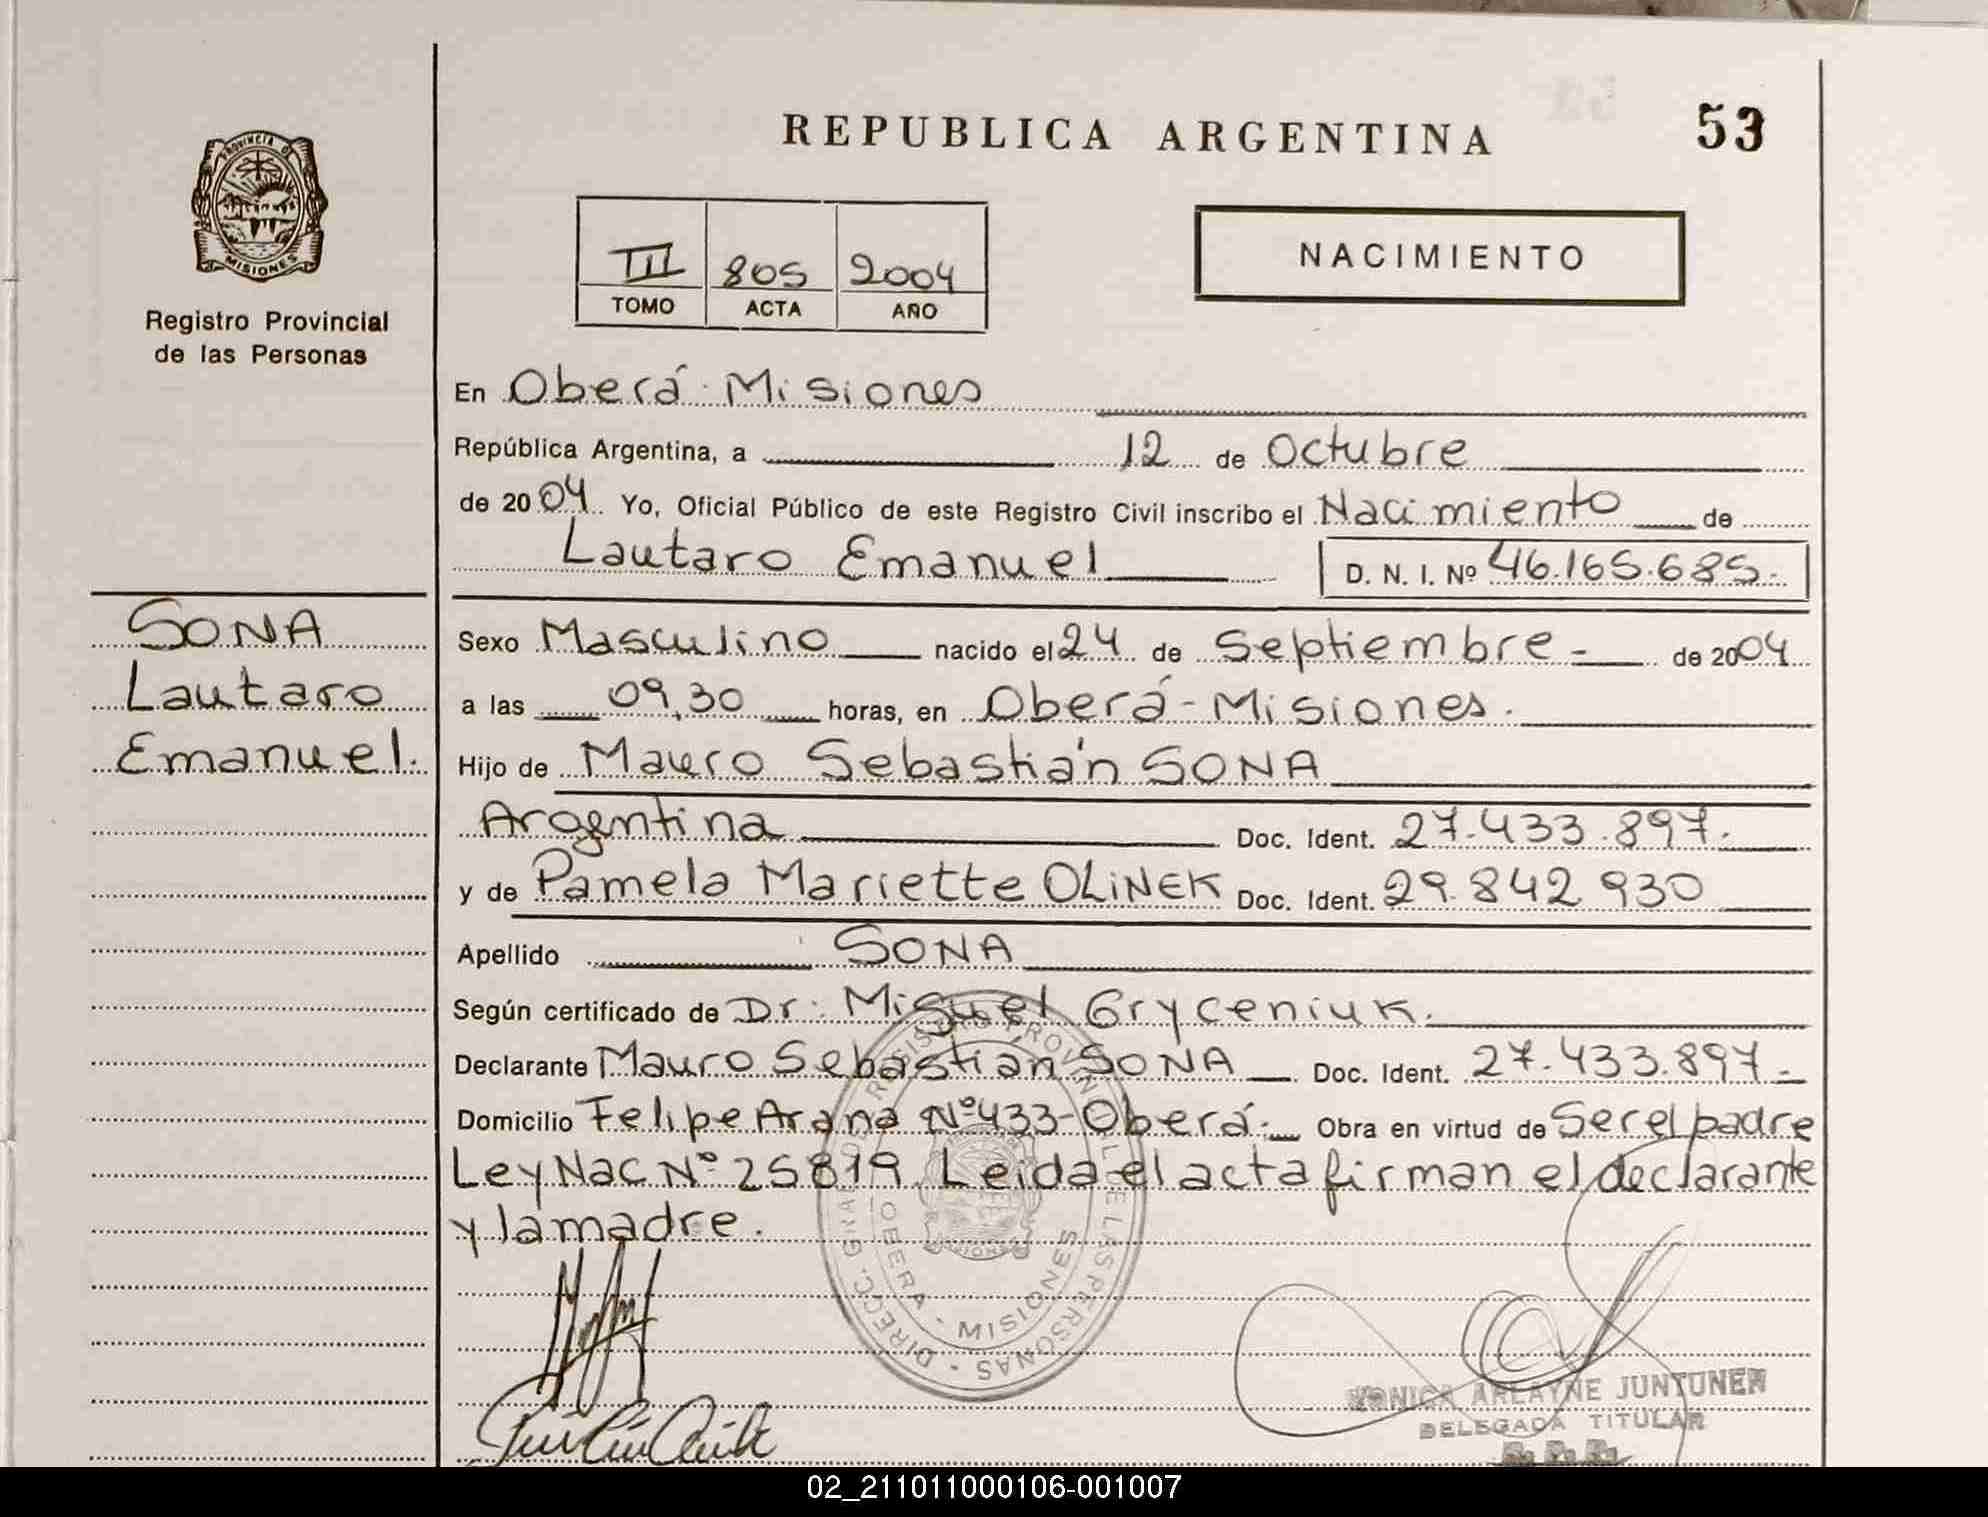 REPUBLICA ARGENTINA
53
PROVINCIA DE
MISIONES
Registro Provincial
de las Personas
III 805 2004
TOMO ACTA AÑO
NACIMIENTO
En Oberá - Misiones
República Argentina, a 12 de Octubre
de 2004 Yo, Oficial Público de este Registro Civil inscribo el Nacimiento de
Lautaro Emanuel D. N. I. Nº 46.165.685.-
SONA
Lautaro
Emanuel.
Sexo Masculino nacido el 24 de Septiembre - de 2004
a las 09,30 horas, en Oberá - Misiones.
Hijo de Mauro Sebastián SONA
Argentina Doc. Ident. 27.433.897.
y de Pamela Mariette OLINEK Doc. Ident. 29.842 930
Apellido SONA
Según certificado de Dr: Miguel Gryceniuk.
Declarante Mauro Sebastián SONA Doc. Ident. 27.433.897.-
Domicilio Felipe Arana Nº 433 - Oberá.- Obra en virtud de Ser el padre
Ley Nac Nº 25819. Leida el acta firman el declarante
y la madre.
DIRECC. GRAL DEL REGISTRO PROVINCIAL DE LAS PERSONAS
OBERA - MISIONES
MONICA ARLAYNE JUNTUNEN
DELEGADA TITULAR
02_211011000106-001007